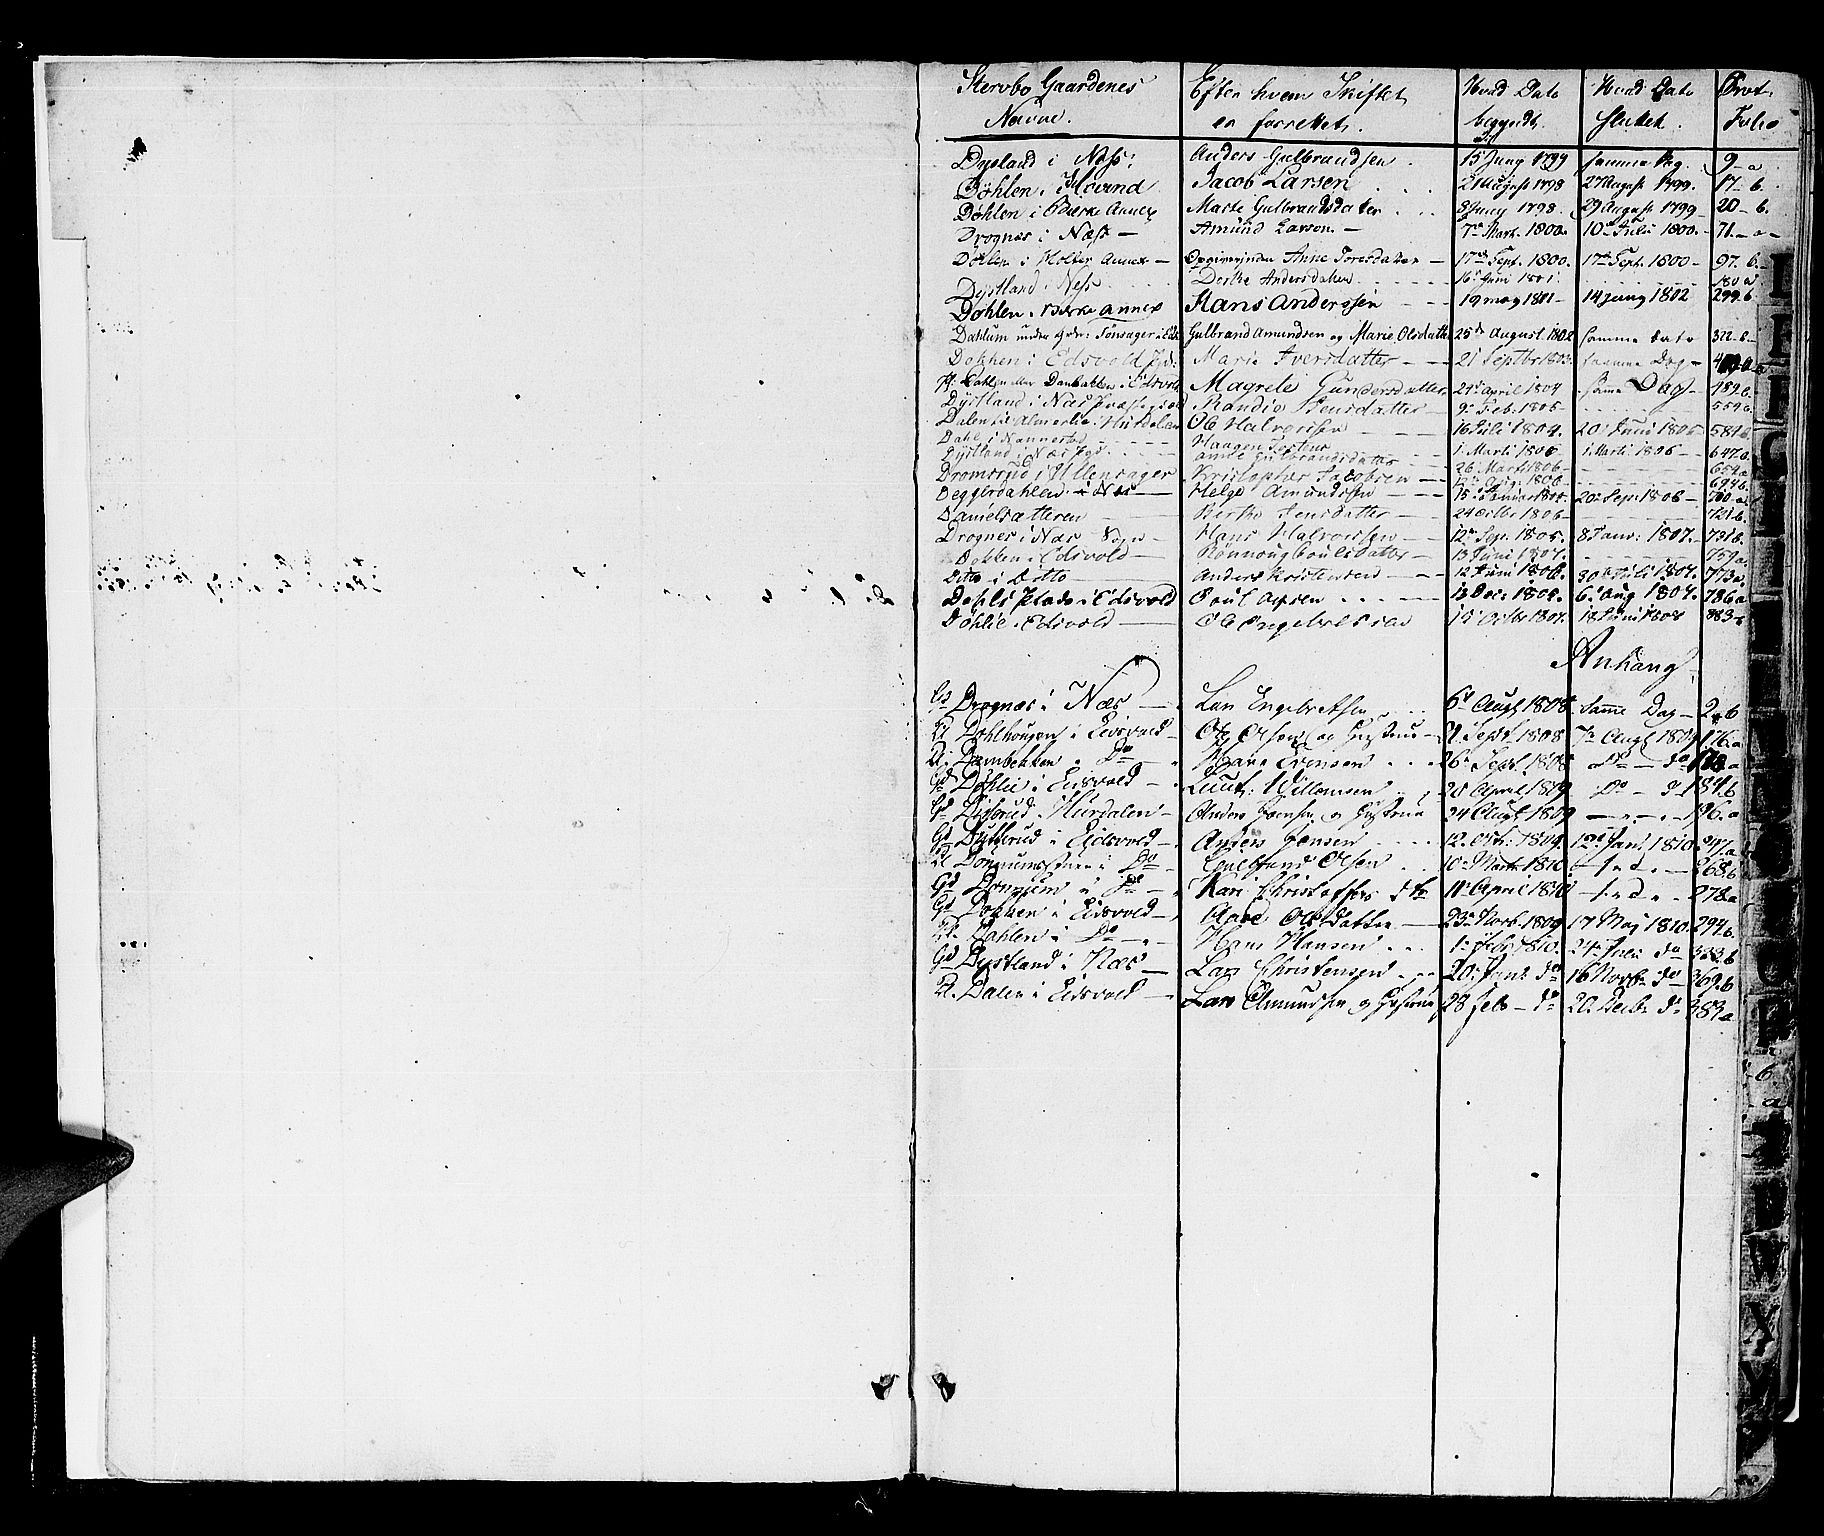 Stervbo Gaardenes Navne. Efter hvem Skiftet er forrettet. Hvad Dato begyndt. Hvad Dato sluttet. Prot. Folio
Dysland i Næss: Anders Gulbrandsen 15 Juny 1799 samme Dag 9 a
Døhlen i Hovind Jacob Larsen 21 August 1798 27 August 1799. 17 b.
Døhlen i Bierke Annex Marte Gulbrandsdater 8 Juny 1798. 29 August 1799 20 b.
Drognes i Næss Amund Larsen 7de Mart. 1800. 10de Juli 1800. 71. a
Døhlen i Holter Annex Anne Toresdatter 17de Sept. 1800. 17de Sept. 1800 97. b.
Dystland i Næss Dorthe Andersdatter 16 Juni 1801. 180 a
Døhlen i Bierke Annex Hans Anderssen 19 may 1801 14 juny 1802 299. b
Dahlum under Gulbrand Amundsen og Marie Olsdatter 25de August 1802 samme dato 322. b
Dokken i Edsvold Marie Iversdatter 21 Septbr 1803. samme Dag
Danbakken i Edsvold Magrete Gundersdatter 24 april 1804 samme Dag 489 a
Dystland i Næs Præstegield Randie Jensdatter 9. Feb. 1805 554 a
Dalen Hurdalen Ole Halvorssen 16 Juli 1804. 20 Juni 1805 584 b.
Dahl i Nannestad Haagen 1 Marti 1806 1 Marti 1806 647 a
Dystland i Næs Anne Gulbrandsdatter 26 Marti 1806 654 a
Dromsrud i Ullensager Kristopher Jacobsen 1806 694 b
Deggerdahlen i Næs Helge Amundssen 15 20 Sep. 1806 700 a
Danielsætteren Berthe Jensdatter 24 Octbr 1806 721 b.
Drognes i Næs Sogn Hans Halvorssen 12 Sep. 1805. 8 Janv. 1807. 731 b.
Dokken i Edsvold Rønnoug Poulsdatter 13 Juni 1807. 759 a
Ditto i Ditto Anders Kristensen 12 Juni 1806. 30 Juli 1807. 773 a.
Dahls Plads i Edsvold Poul 13 Dec. 6 Aug 1807. 786 a
Døhlie i Edsvold Ole Engebretsen 15 Octbr 1807. 18 Juni 1808 883
Anhang
Gd Drognæs i Næs Lars Engebretsen 6te Augt 1808 samme Dag 2 b
Pl Dahlhougen i Eidsvold Ole Olsen og Hustrue 9 Septr 1808 7de Augt 1809 176 a
Pl. Dambekken i Do Hans Evensen 26 Septr 1808 do do
Gd Døhlie i Eidsvold Lieut: Willomsen 20 April 1809 do do 184 b
Gd Hurdalen Anders Jensen og Hustrue 24 Augt 1809 196. a
Gd Dytterud i Eidsvold Anders Jensen 12 Oct. 1809. 12 Jan. 1810 247 a
Pl i Do Gulbrand Olsen 10 Martii 1810 268 b
Gd Dønnum i Do Kari Christoffersdtr 11 April 1810 278 a
Gd Dokken i Eidsvold Marie Olsdatter 23 Novb. 1809 17 May 1810. 294 b.
Pl. Dahlen i Do Hans Hansen 1 Febr 1810. 24 Julii do 323 b
Gd Dystland i Næs Lars Christensen 20 Janr do 16 Novbr do 369 b
Pl. Dalen i Eidsvold Lars Amundsen og Hustrue 28 Feb do 20 Decbr do 383 a